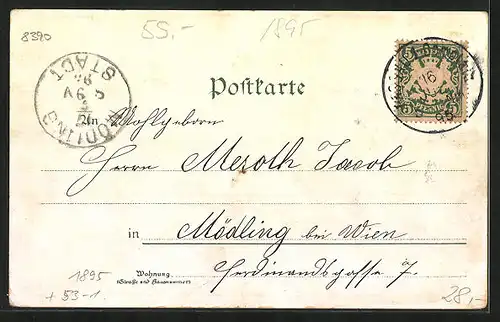 8390
55.-
1895
MÖDLING
STADT
Postkarte
An Wohlgeboren
Herrn Meroth Jacob
in Mödling bei Wien
Wohnung
(Strasse und Hausnummer)
Ferdinandsgasse 7.
1895
+ 53-1
28,-